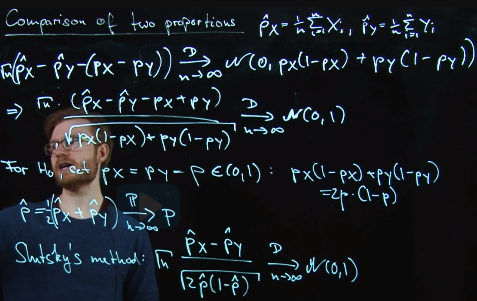 Comparison of two proportions p̂x = 1/n Σ_{i=1}^{n} Xi, p̂y = 1/n Σ_{i=1}^{n} Yi
√n (p̂x - p̂y - (px - py)) →^D_{n→∞} N(0, px(1-px) + py(1-py))
⇒ √n · (p̂x - p̂y - px + py) / √(px(1-px) + py(1-py)) →^D_{n→∞} N(0,1)
For H₀, set px = py = p ∈ (0,1) : px(1-px) + py(1-py)
= 2p · (1-p)
p̂ = 1/2 (p̂x + p̂y) →^P_{n→∞} p
Slutsky's method: √n (p̂x - p̂y) / √(2p̂(1-p̂)) →^D_{n→∞} N(0,1)